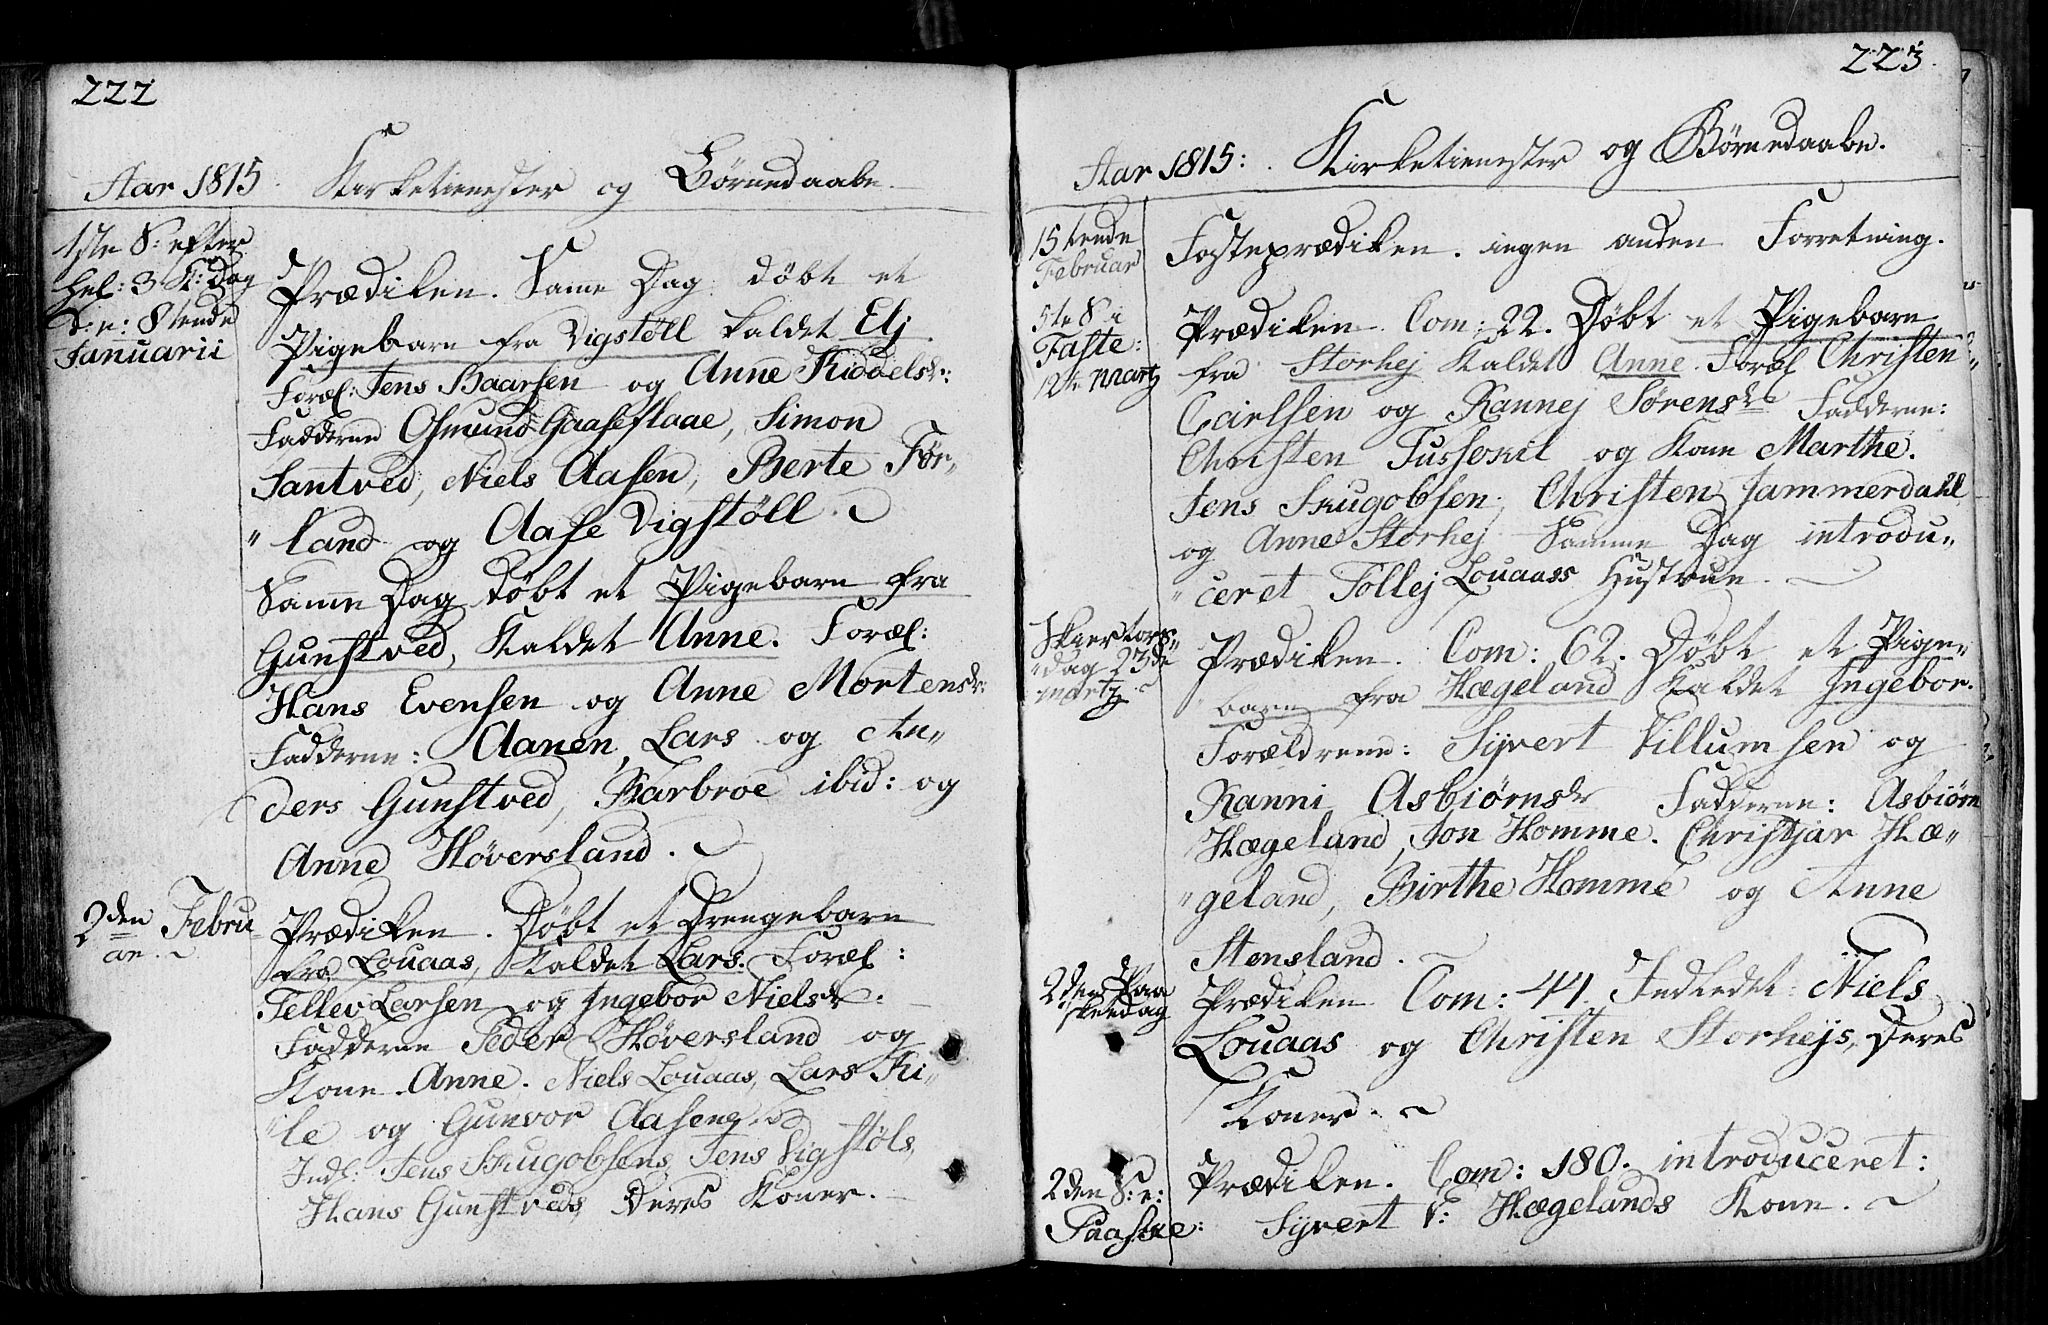 222
Aar 1815. Kirketienester og Börnedaabe.
1ste S: efter
Hel: 3 K: dag
d: n: 8tende
Januarii
Prædiken. Same Dag döbt et
Pigebarn fra Vigstöll kaldet Elj.
Foræl: Jens Baarsen og Anne Kiddelsdr:
Fadderne Osmund Haaseflaae, Simon
Santved, Niels Aasen, Berte Før,,
,, land og Aase Vigstöll.
Same Dag döbt et Pigebarn fra
Gunstved, kaldet Anne. Foræl:
Hans Evensen og Anne Mortensdr:
Fadderne: Aanen, Lars og An,,
ders Gunstved, Barbroe ibid: og
Anne Høversland.
2den Febru
ar.
Prædiken. Döbt et Drengebarn
fra Louaas, kaldet Lars. Foræl:
Tellev Larsen og Ingebor Nielsdr.
Fadderne Peder Høversland og
Kone Anne. Niels Louaas, Lars Ki,,
,, le og Gunvor Aasen
Indl: Jens Skugobsens, Jens Vigstöls,
Hans Gunstveds, Deres Koner.
223.
Aar 1815: Kirketienester og Börnedaabe.
15tende
Februar
Fasteprædiken. ingen anden Forretning.
5te S: i
Faste:
12te Martz
Prædiken. Com: 22. Döbt et Pigebarn
fra Storhej kaldet Anne. Foræl Christen
Carlsen og Rannej Sørensdr Fadderne:
Christen Tussoxil og Kone Marthe.
Jens Skugobsen, Christen Jammerdahl
og Anne Storhej Samme Dag introdu,,
,, ceret Tollej Louaass Hustrue.
Skiertors,,
,, dag 23de
martz
Prædiken. Com: 62. Döbt et Pige,,
barn fra Hægeland kaldet Ingebor.
Forældrene: Sijvert Villumsen og
Ranni Asbiørnsdr Fadderne: Asbiørn
Hægeland, Jon Homme. Christjan Hæ,,
,, geland, Birthe Homme og Anne
Stensland.
2den Paa
skedag
Prædiken Com: 44. Indledet: Niels
Louaas og Christen Storhejs, Deres
Koner.
2den S: e:
Paaske:
Prædiken. Com: 180. introduceret:
Sijvert V: Hægelands Kone.